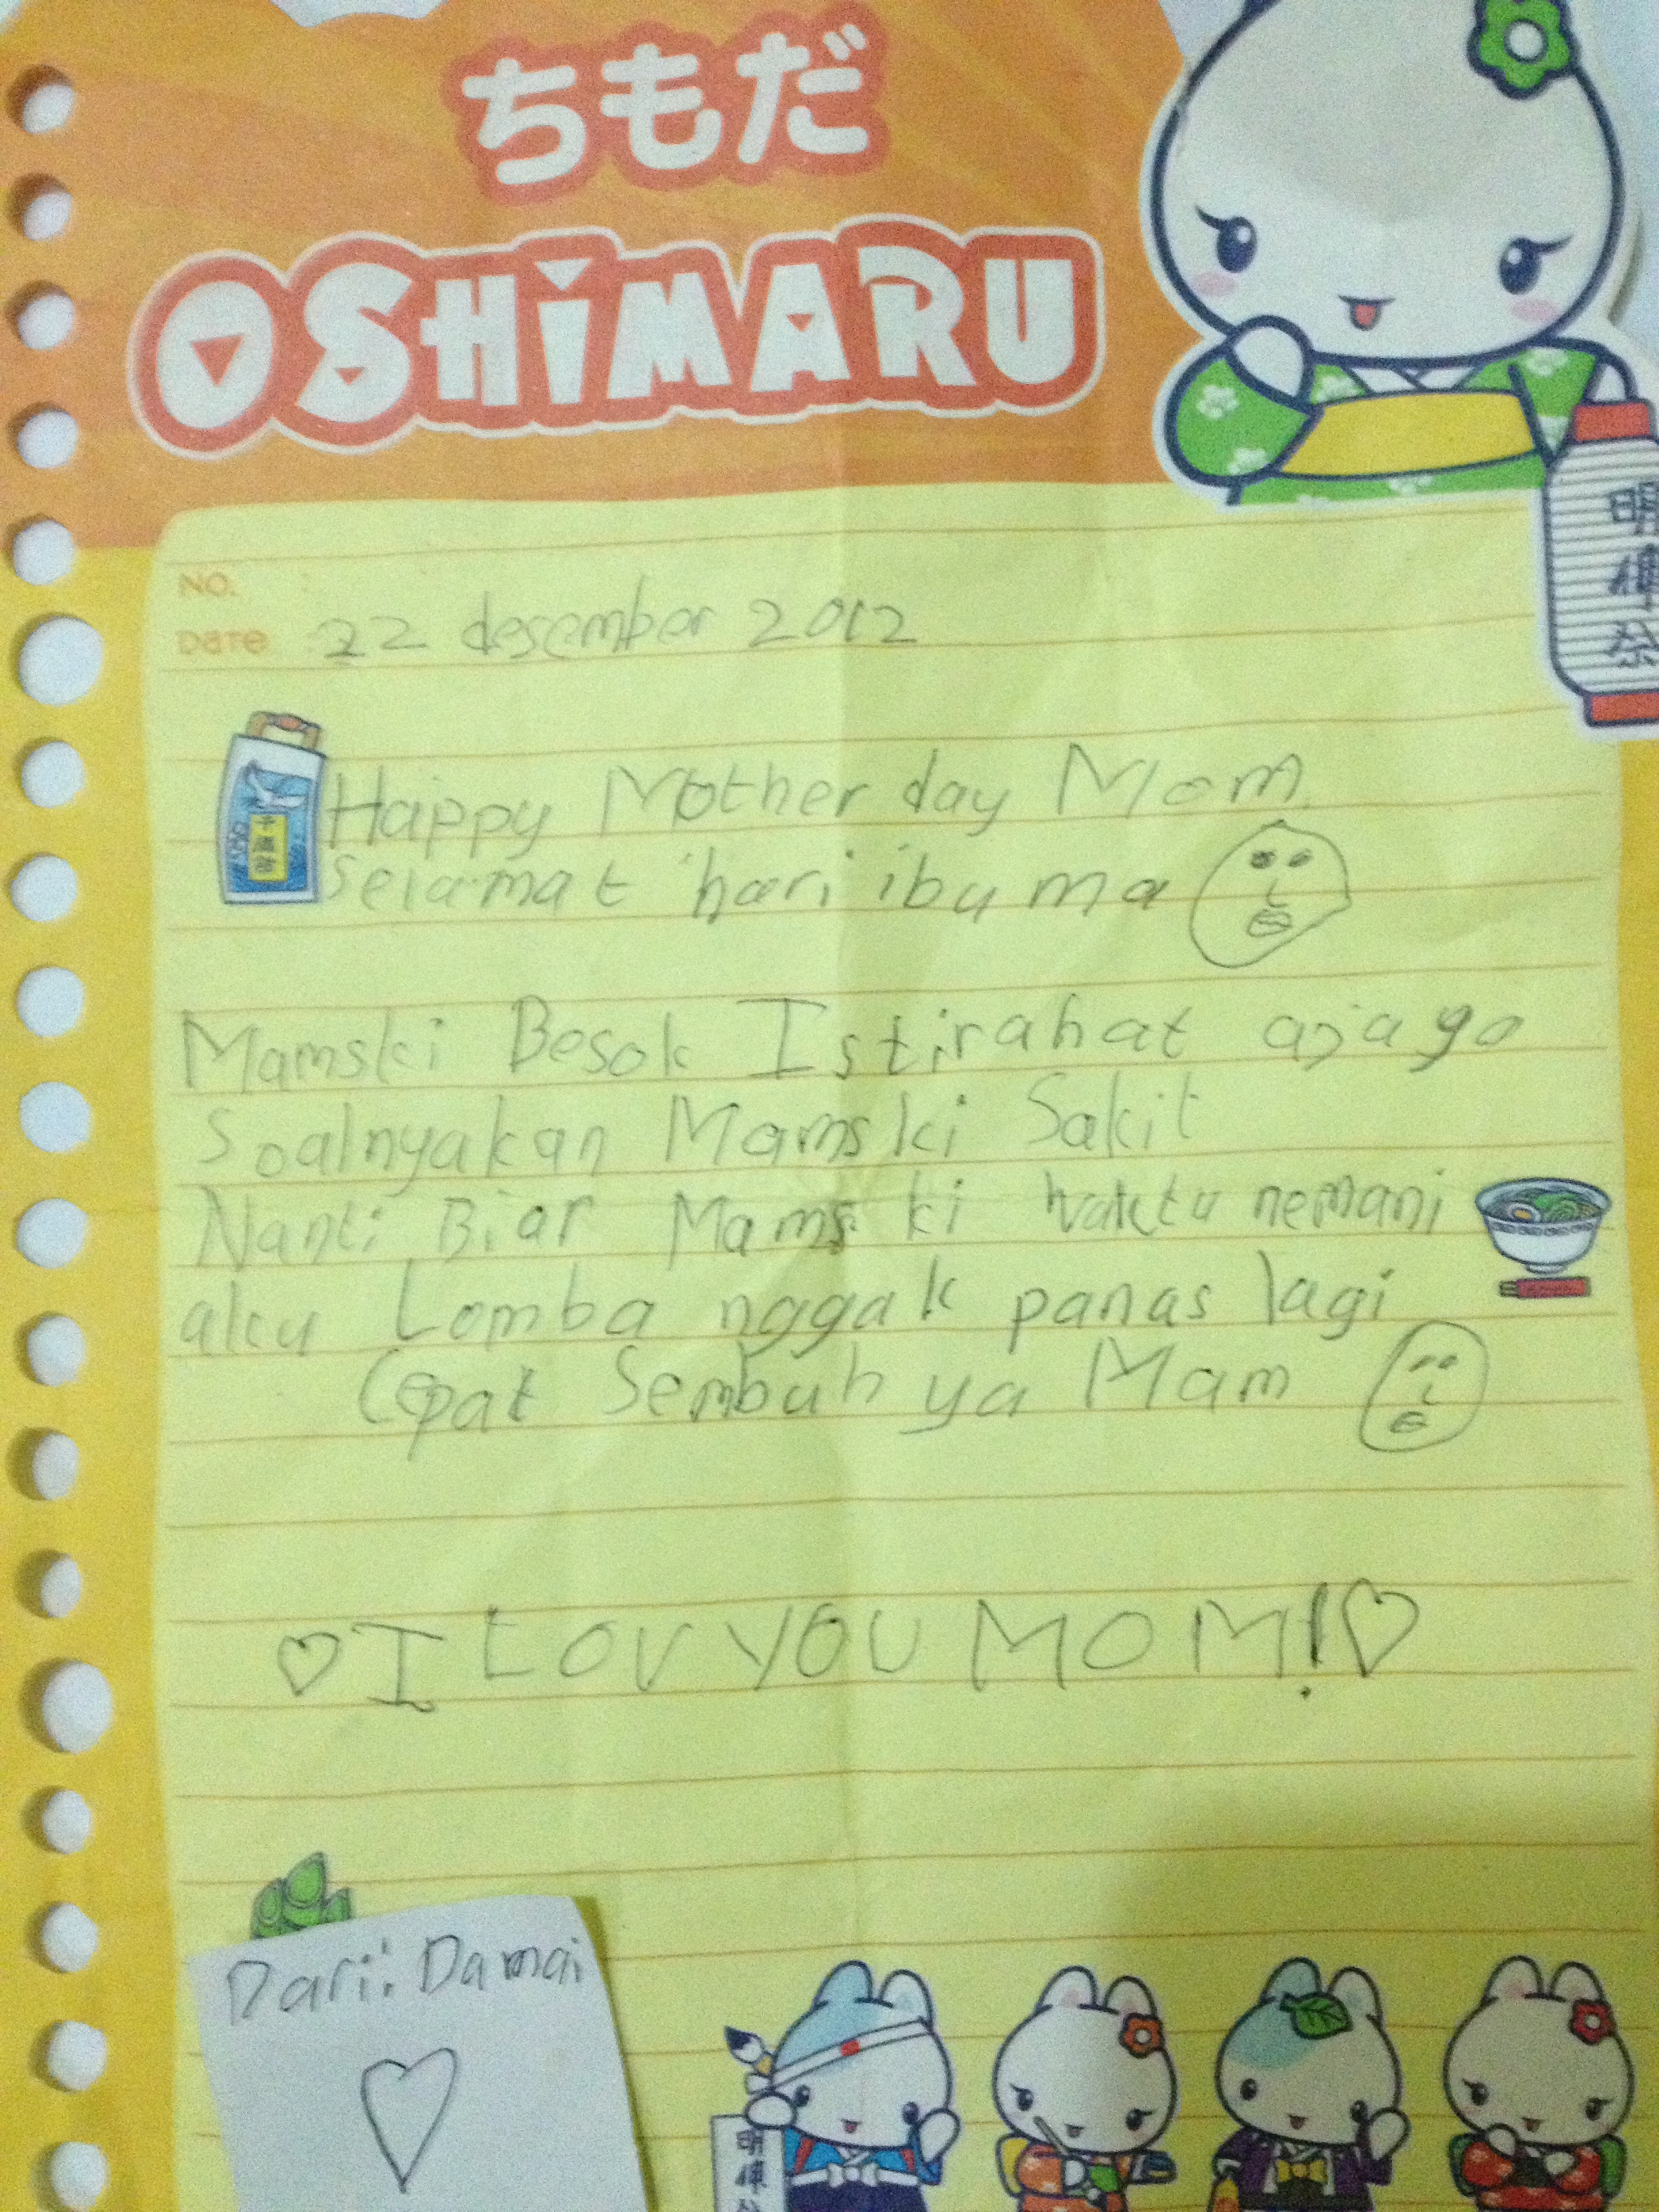 ちもだ
OSHiMARU
NO.
DATE 22 desember 2012
Happy Mother day Mom
Selamat hari ibu ma
Mamski Besok Istirahat aja ya
Soalnyakan Mamski Sakit
Nanti Biar Mamski waktu nemani
aku Lomba nggak panas lagi
Cepat Sembuh ya Mam
I LOV YOU MOM!
Dari: Damai